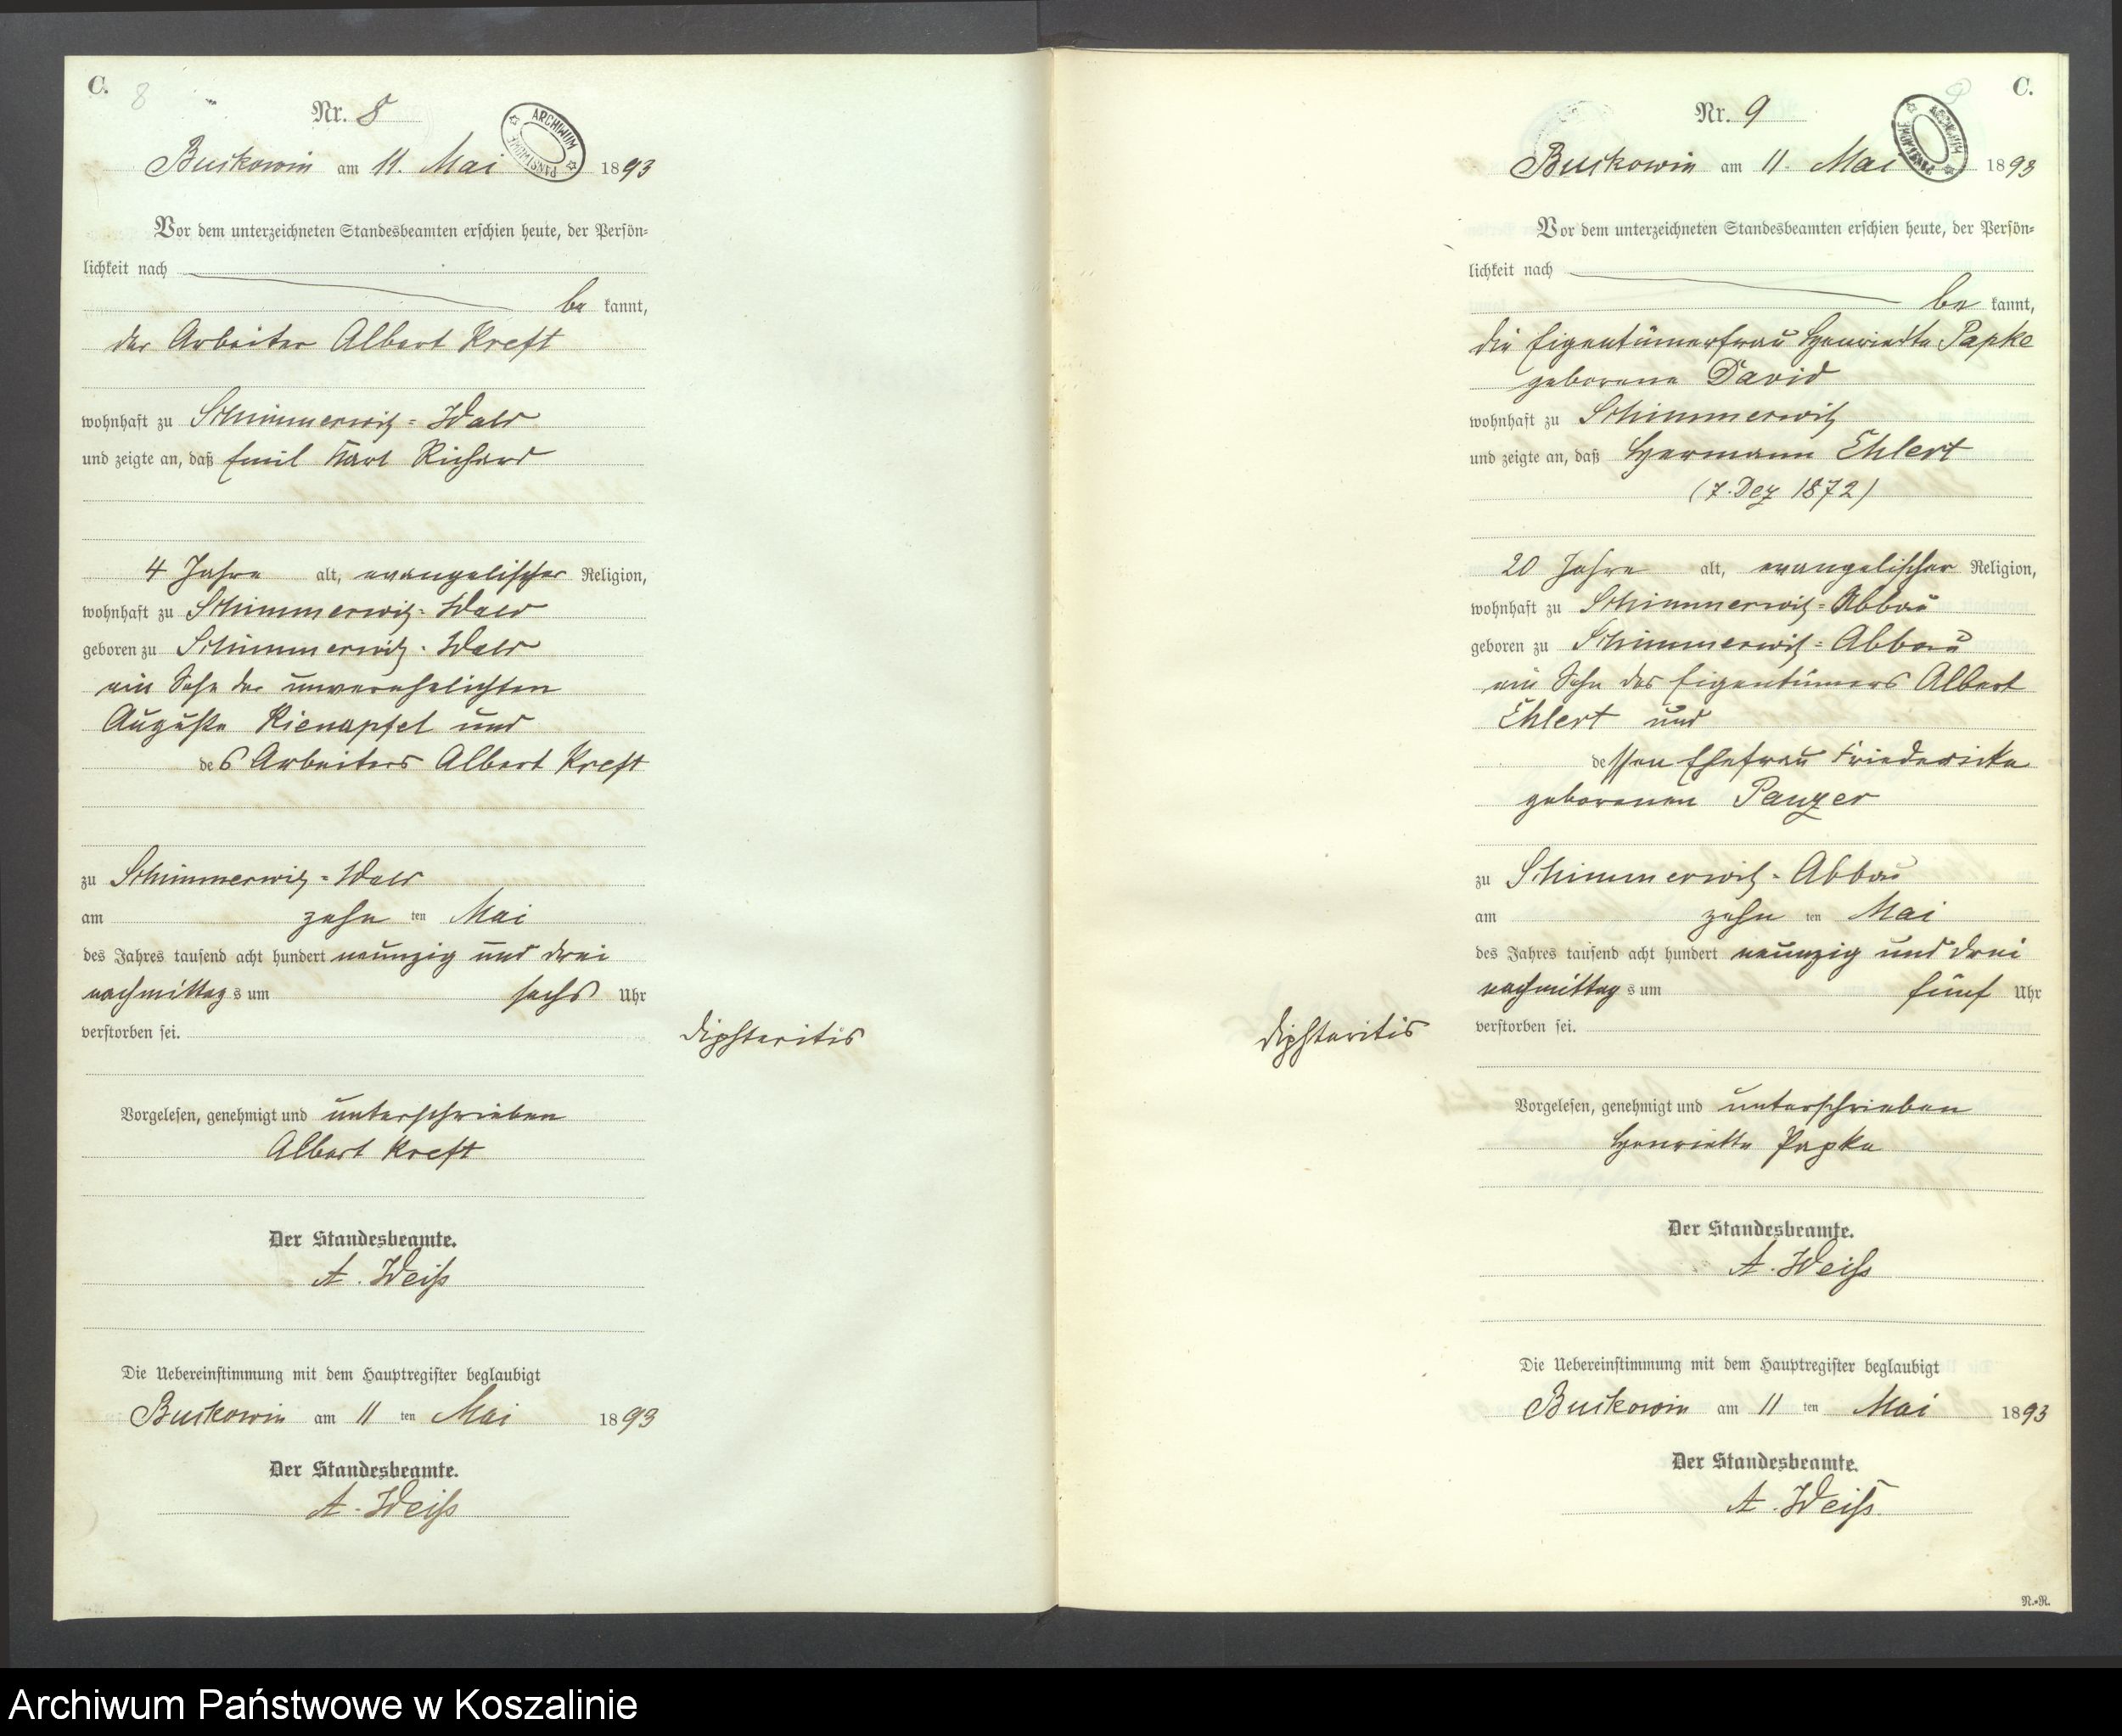 C.
8
Nr. 8
ARCHIWUM PAŃSTWOWE
Buckowin am 11. Mai 1893
Vor dem unterzeichneten Standesbeamten erschien heute, der Persön-
lichkeit nach
be kannt,
der Arbeiter Albert Kreft
wohnhaft zu Schimmerwitz-Wald
und zeigte an, daß Emil Karl Richard
4 Jahre alt, evangelischer Religion,
wohnhaft zu Schimmerwitz-Wald
geboren zu Schimmerwitz-Wald
ein Sohn der unverehelichten
Auguste Kienapfel und
des Arbeiters Albert Kreft
zu Schimmerwitz-Wald
am zehn ten Mai
des Jahres tausend acht hundert neunzig und drei
nachmittag s um sechs Uhr
verstorben sei.
diphteritis
Vorgelesen, genehmigt und unterschrieben
Albert Kreft
Der Standesbeamte.
A. Weiß
Die Uebereinstimmung mit dem Hauptregister beglaubigt
Buckowin am 11 ten Mai 1893
Der Standesbeamte.
A. Weiß
C.
9
Nr. 9
ARCHIWUM PAŃSTWOWE
Buckowin am 11. Mai 1893
Vor dem unterzeichneten Standesbeamten erschien heute, der Persön-
lichkeit nach
be kannt,
die Eigentümerfrau Henriette Papke
geborene David
wohnhaft zu Schimmerwitz
und zeigte an, daß Hermann Ehlert
(7. Dez 1872)
20 Jahre alt, evangelischer Religion,
wohnhaft zu Schimmerwitz-Abbau
geboren zu Schimmerwitz-Abbau
ein Sohn des Eigentümers Albert
Ehlert und
dessen Ehefrau Friedericke
geborenen Panzer
zu Schimmerwitz-Abbau
am zehn ten Mai
des Jahres tausend acht hundert neunzig und drei
nachmittag s um fünf Uhr
verstorben sei.
diphteritis
Vorgelesen, genehmigt und unterschrieben
Henriette Papke
Der Standesbeamte.
A. Weiß
Die Uebereinstimmung mit dem Hauptregister beglaubigt
Buckowin am 11 ten Mai 1893
Der Standesbeamte.
A. Weiß
N.-R.
Archiwum Państwowe w Koszalinie